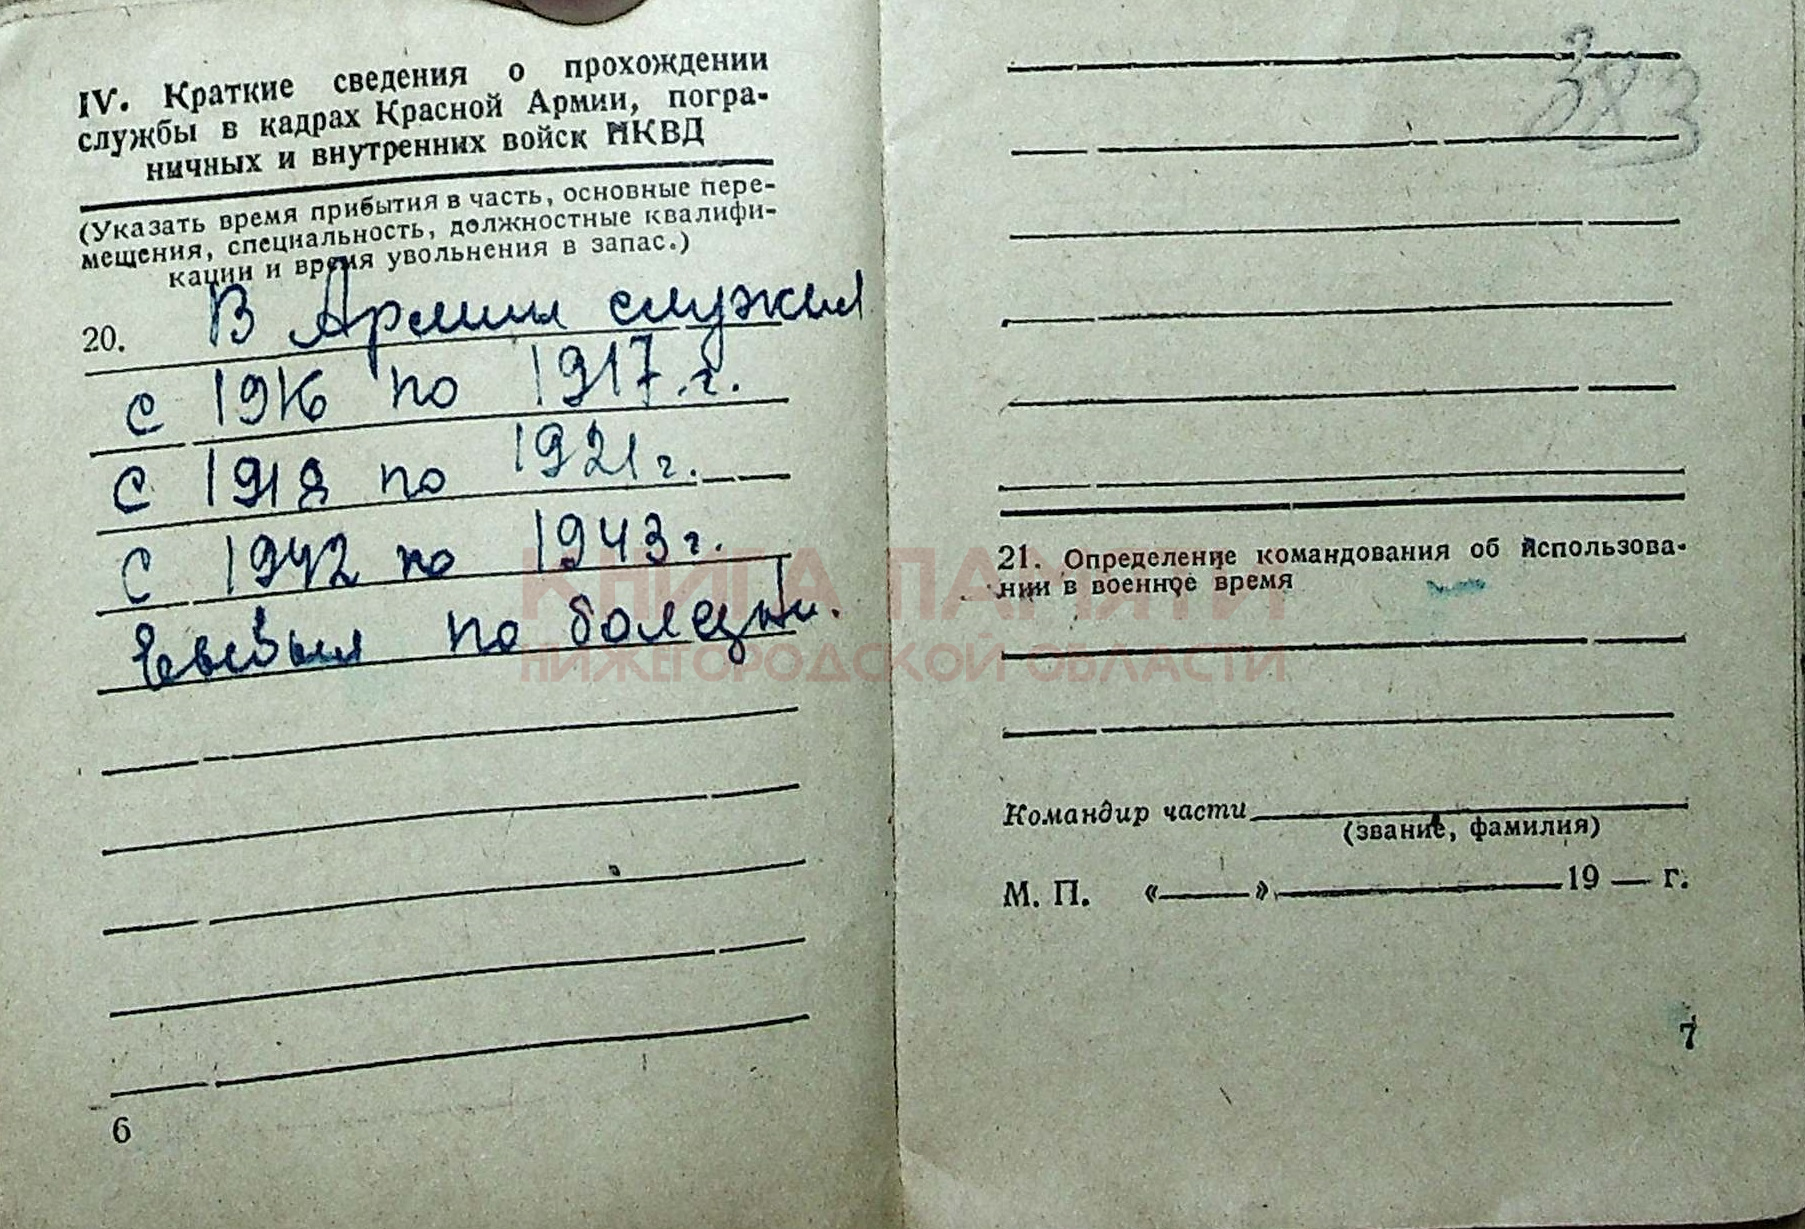 IV. Краткие сведения о прохождении
службы в кадрах Красной Армии, погра-
ничных и внутренних войск НКВД
(Указать время прибытия в часть, основные пере-
мещения, специальность, должностные квалифи-
кации и время увольнения в запас.)
20. В Армии служил
с 1916 по 1917 г.
с 1918 по 1921 г.
с 1942 по 1943 г.
по болезни.
6
383
21. Определение командования об использова-
нии в военное время
Командир части
(звание, фамилия)
М. П. « » 19 — г.
7
КНИГА ПАМЯТИ
НИЖЕГОРОДСКОЙ ОБЛАСТИ